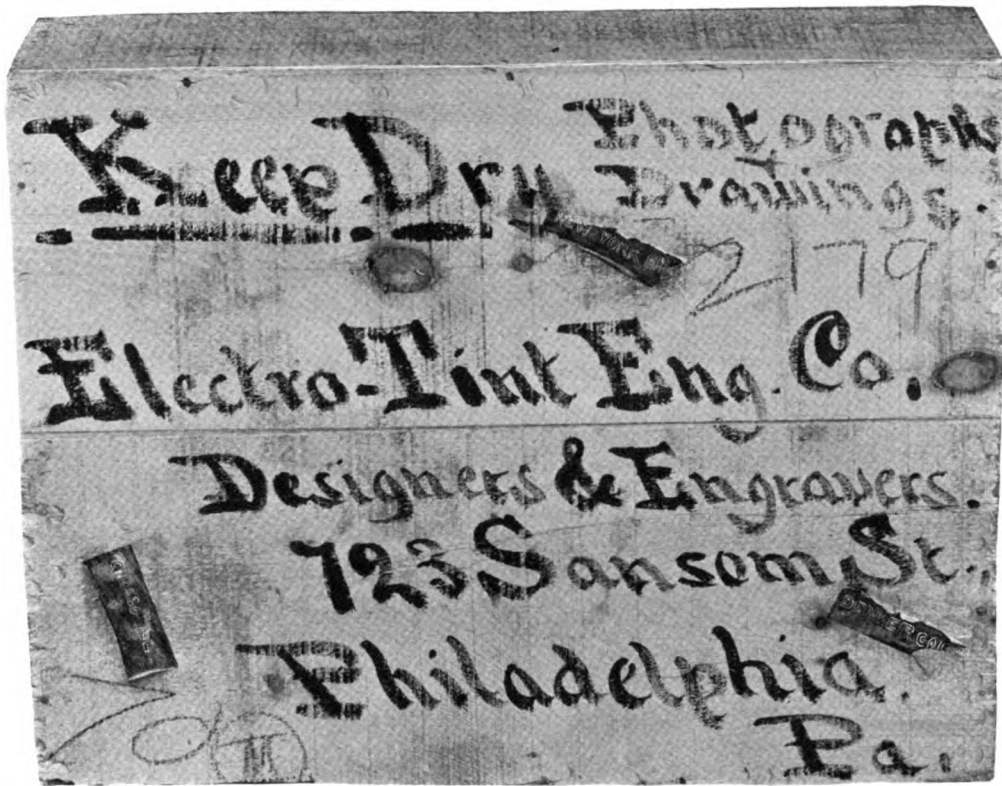 Keep Dry
Photographs
+
Drawings.
2179
Electro-Tint Eng. Co.
Designers & Engravers.
723 Sansom St.,
Philadelphia.
Pa.
M